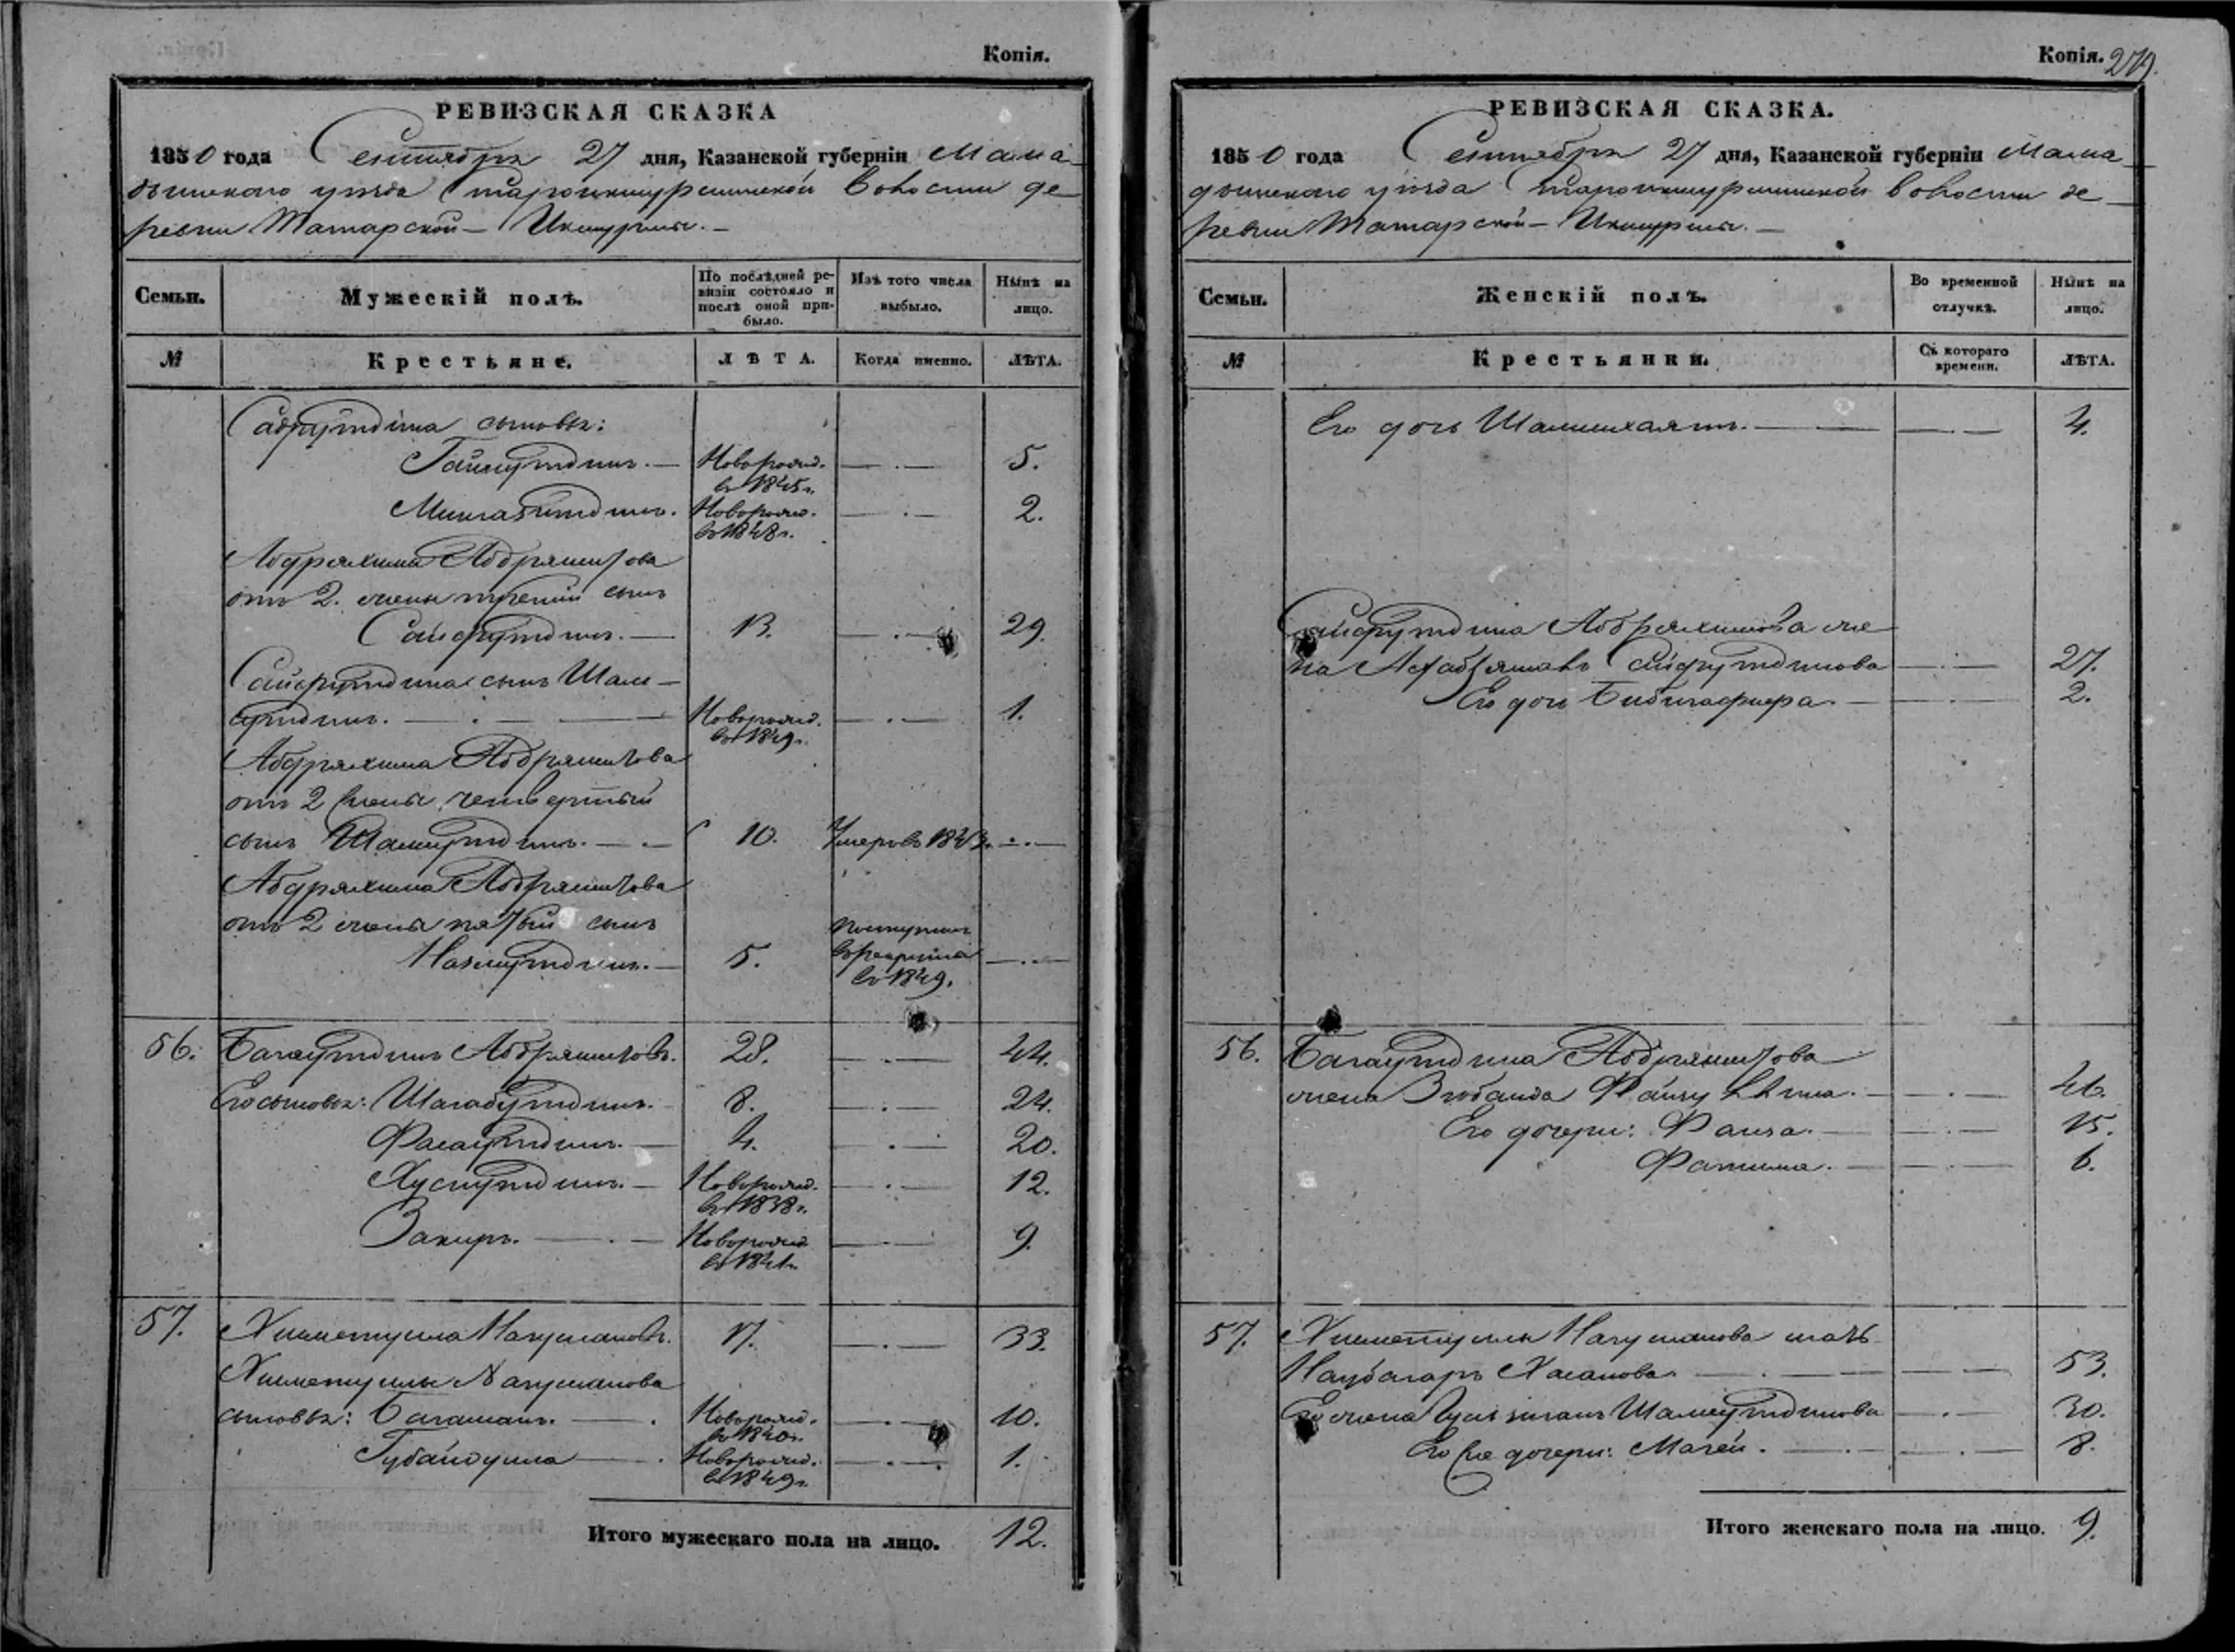 Копія.
РЕВИЗСКАЯ СКАЗКА
1850 года Сентября 27 дня, Казанской губерніи Мама-
дышскаго уѣзда Староикшурминской волости де-
ревни Татарской - Икшурмы. -
Семьи.
Мужескій полъ.
По послѣдней ре-
визіи состояло и
послѣ оной при-
было.
Изъ того числа
выбыло.
Нынѣ на
лицо.
№
Крестьяне.
ЛѢТА.
Когда именно.
ЛѢТА.
сыновья:
Новорожд. 5.
в 1845 г.
Новорожд. 2.
в 1848 г.
Абдряхима Абдряшитова
отъ 2. жены третій сынъ
Сайфутдинъ. — 13. 29.
Сайфутдина сынъ Шам-
сутдинъ. Новорожд. 1.
в 1849 г.
Абдряхима Абдряшитова
отъ 2 жены четвертый
сынъ 10. Умеръ въ
Абдряхима Абдряшитова
отъ 2 жены пятый сынъ поступилъ
Назмутдинъ. — 5. в рекруты
в 1849.
56. Багаутдинъ Абдряшитовъ. 28. 44.
Его сыновья: Шагабутдинъ. 8. 24.
4. 20.
Хуснутдинъ. — Новорожд. 12.
в 1838 г.
Закиръ. Новорожд 9.
в 1841 г.
57. Хисметулла Нагумановъ. 17. 33.
Хисметуллы Нагуманова
сыновья: Багаманъ. Новорожд. 10.
в 1840 г.
Губайдулла Новорожд. 1.
в 1849 г.
Итого мужескаго пола на лицо. 12.
Копія. 279.
РЕВИЗСКАЯ СКАЗКА.
1850 года Сентября 27 дня, Казанской губерніи Мама-
дышскаго уѣзда Староикшурминской волости де-
ревни Татарской - Икшурмы. —
Семьи.
Женскій полъ.
Во временной
отлучкѣ.
Нынѣ на
лицо.
№
Крестьянки.
Съ котораго
времени.
ЛѢТА.
Его дочь 4.
Сайфутдина Абдряхимова же-
на Сайфутдинова 27.
Его дочь 2.
56. Багаутдина Абдряшитова
жена 46.
Его дочери: Фаиза. 15.
Фатима. 6.
57. Хисметуллы Нагуманова мать
Хасанова 53.
Его жена Шамсутдинова 30.
дочери: 8.
Итого женскаго пола на лицо. 9.